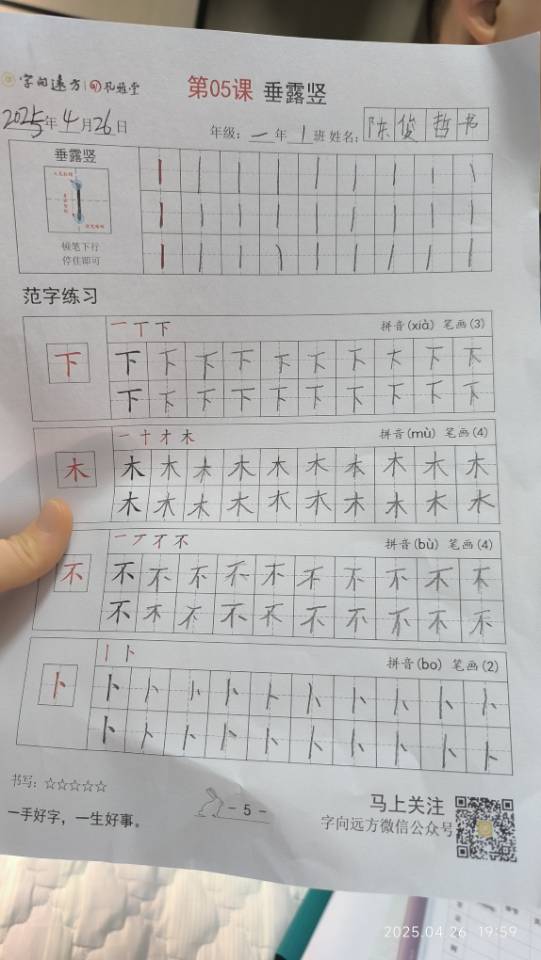 字向远方
第05课 垂露竖
2025年4月26日 年级：一年1班 姓名：陈俊哲书
垂露竖
顿笔下行
停住即可
范字练习
下 一丁下 拼音(xià) 笔画(3)
下下下下下下下下下下
下下下下下下下下下下
木 一十才木 拼音(mù) 笔画(4)
木木木木木木木木木木
木木木木木木木木木木
不 一丆不不 拼音(bù) 笔画(4)
不不不不不不不不不不
不不不不不不不不不不
卜 丨卜 拼音(bo) 笔画(2)
卜卜卜卜卜卜卜卜卜卜
卜卜卜卜卜卜卜卜卜卜
书写：☆☆☆☆☆
一手好字，一生好事。
- 5 -
马上关注
字向远方微信公众号
2025.04.26 19:59